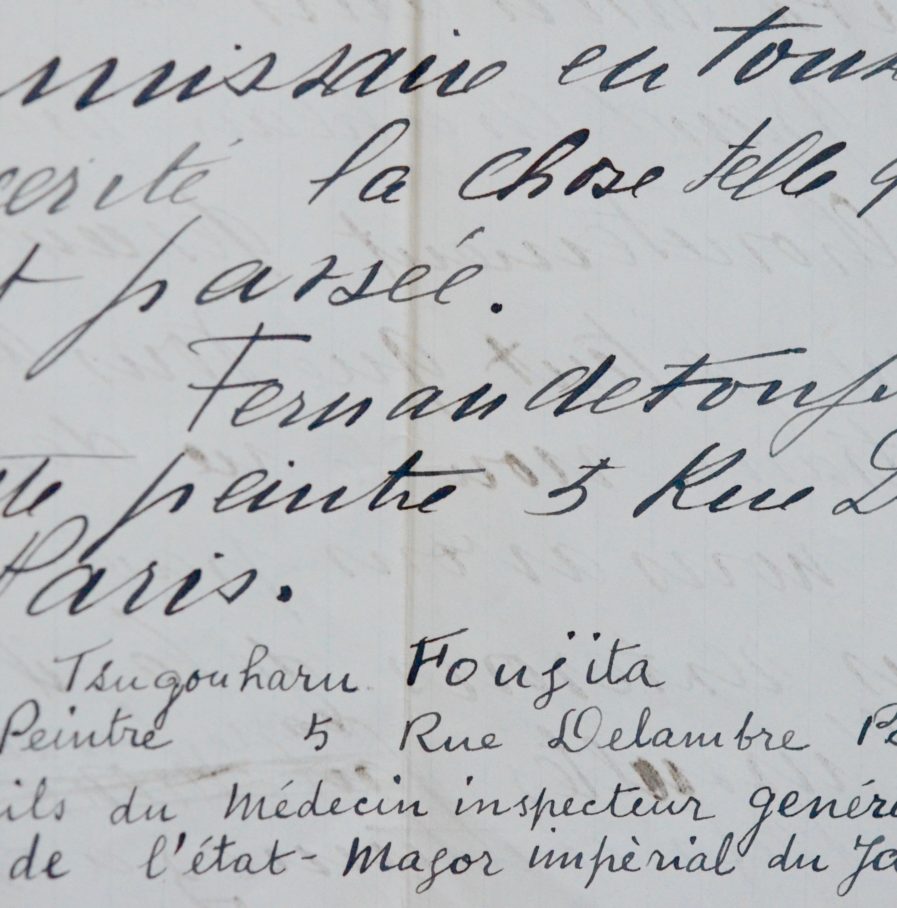 missaire en tous
cerité la chose telle q
t passée.
Fernande Fouj
te peintre 5 Rue D
Paris.
Tsugouharu Foujita
Peintre 5 Rue Delambre Pa
ils du Médecin inspecteur généra
de l'état-Magor impèrial du Ja